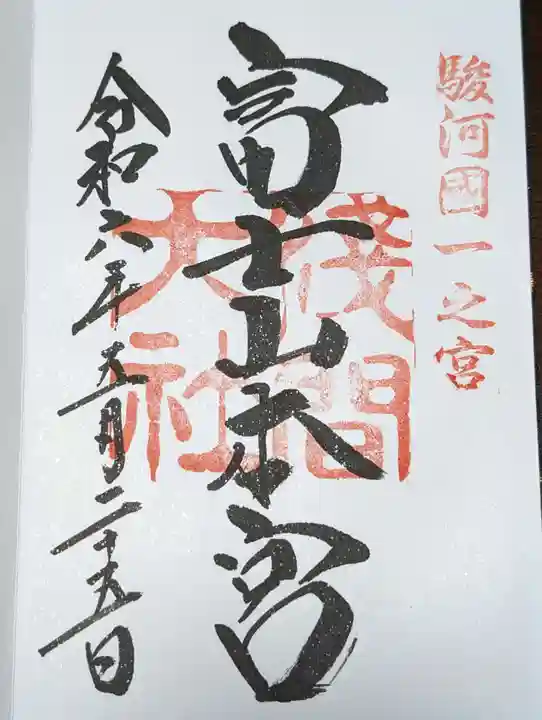 駿河國一之宮
富士山本宮
浅間大社
令和六年五月二十五日